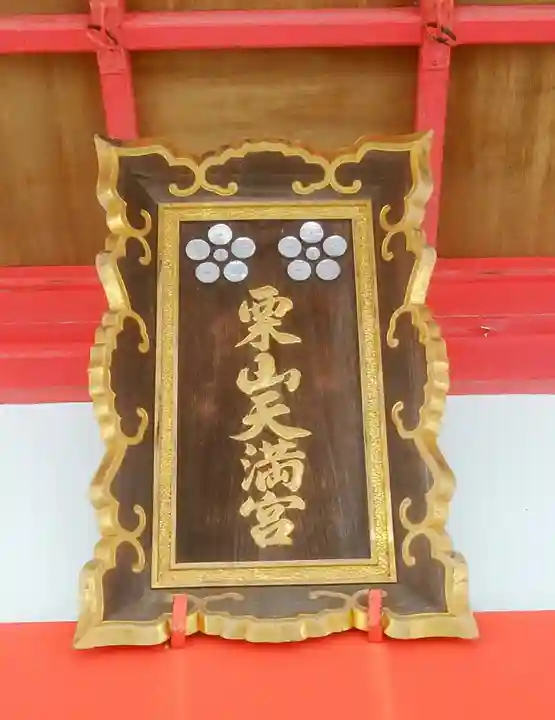 栗山天満宮